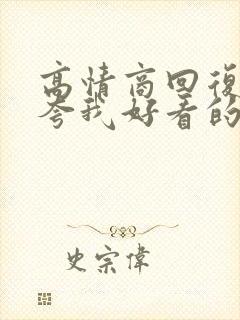 高情商回復
夸我好看的
史宗偉